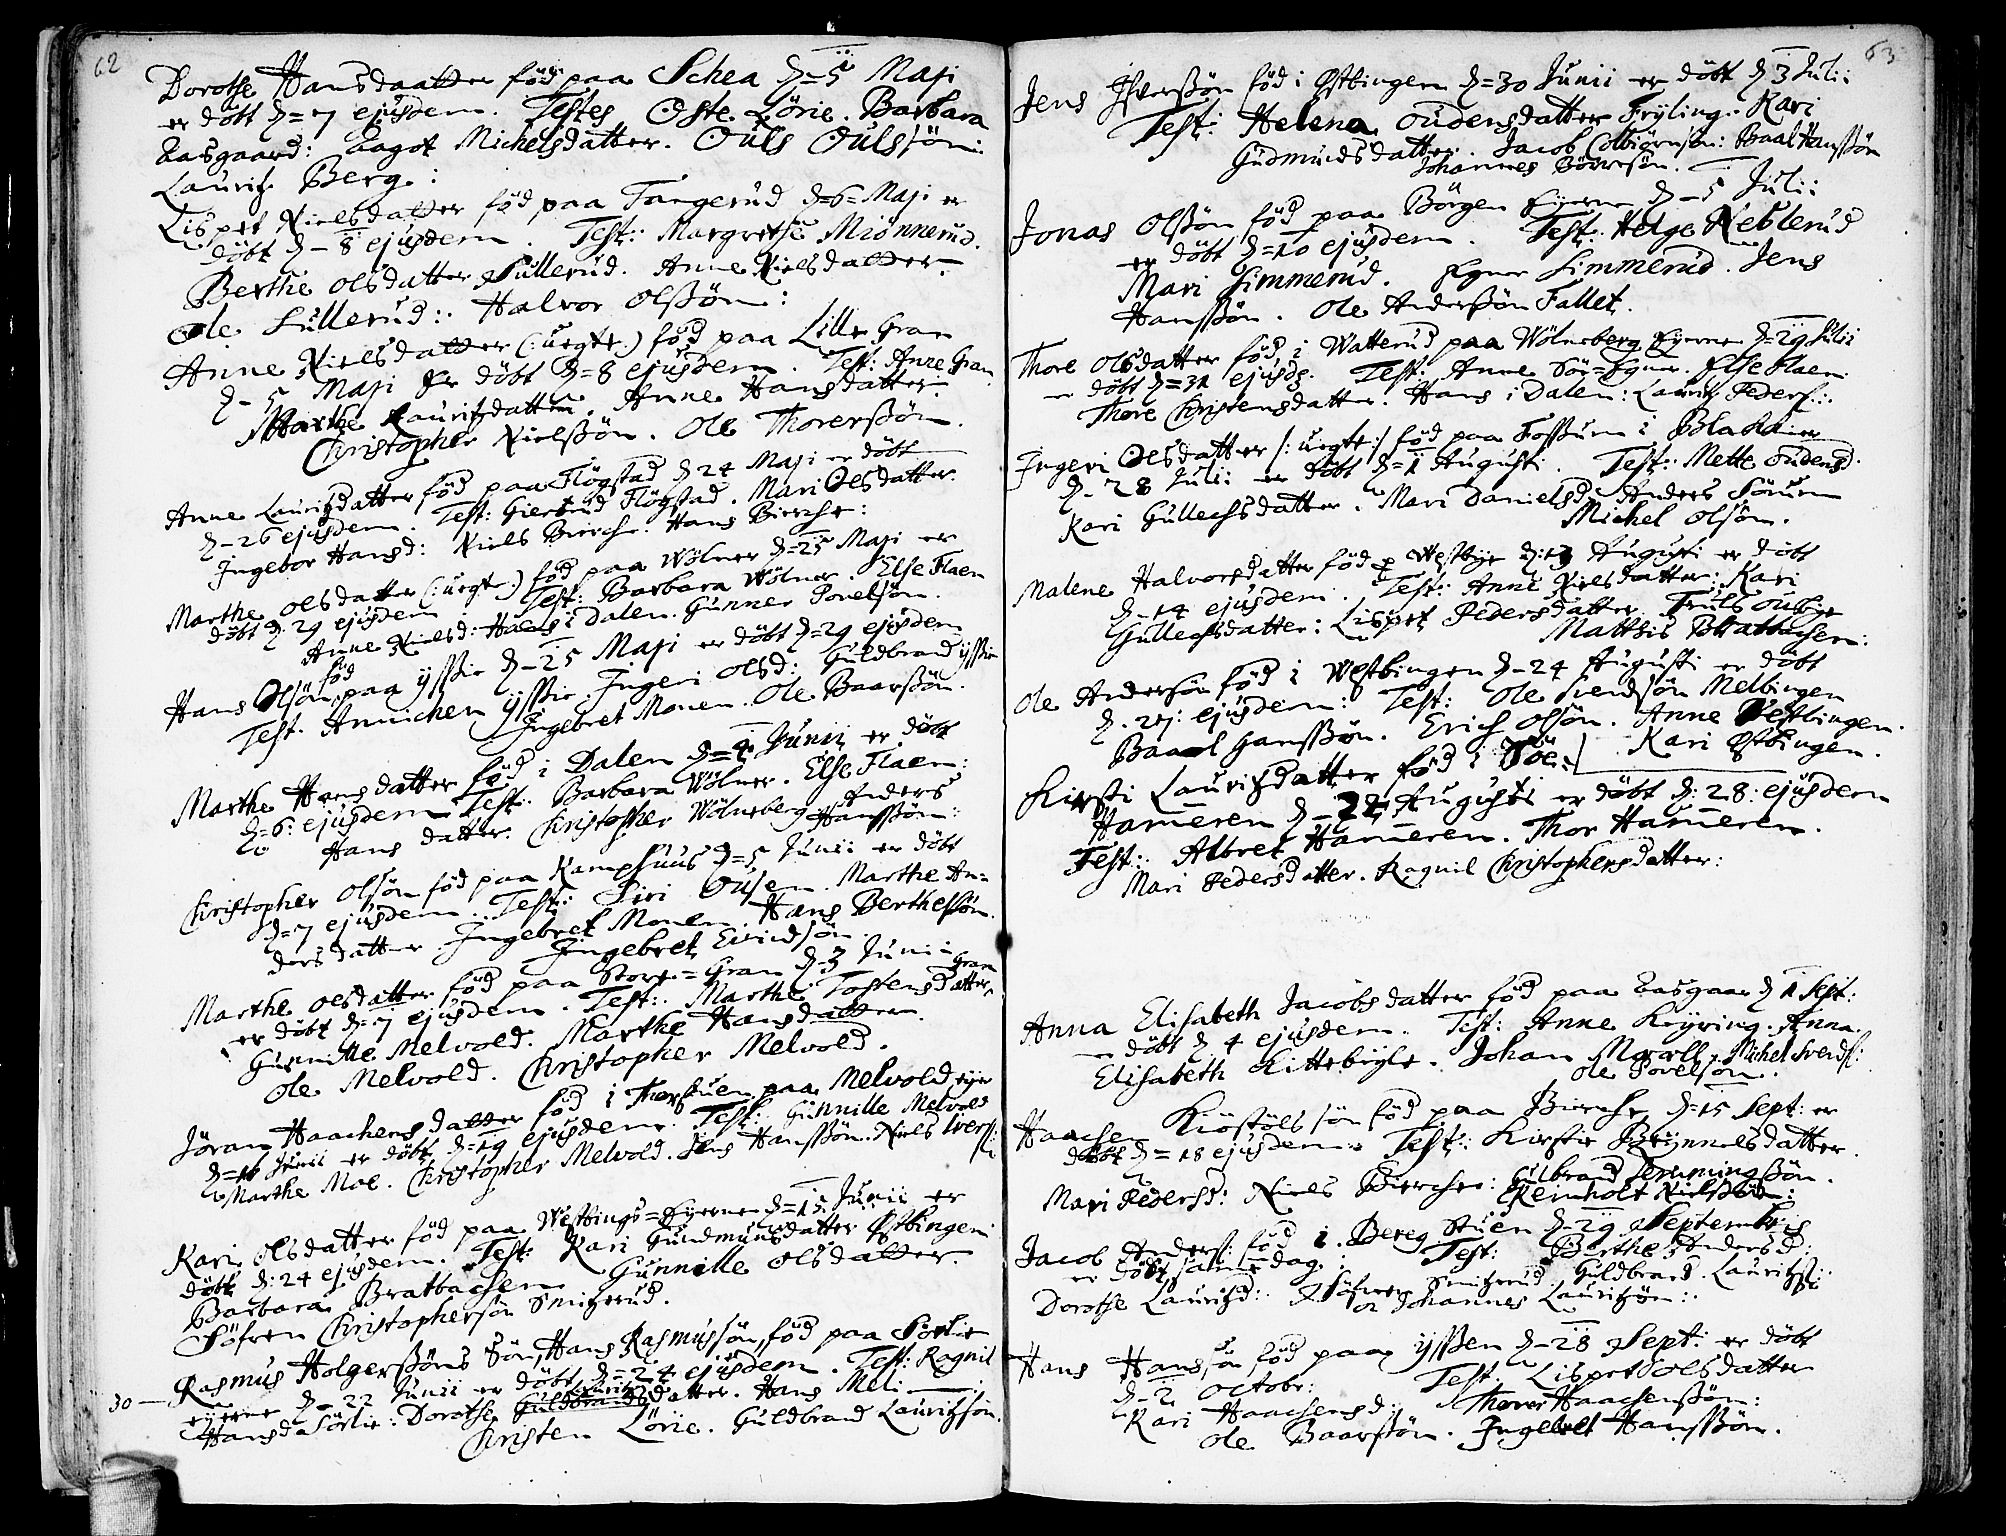 62
Dorothe Hansdaatter föd paa Schea d= 5 Maji
er döbt d= 7 ejusdem. Testes Oste Lörie. Barbara
Aasgaard: Aagot Michelsdatter. Ouls Oulssön:
Lauritz Berg:
Lispet Nielsdatter föd paa Tangerud d=6= Maji er
döbt d- 8 ejusdem. Test: Margrethe Miönnerud.
Berthe Olsdatter Sullerud. Anne Nielsdatter.
Ole Sullerud: Halvor Olssön:
Anne Nielsdatter (: uegte:) föd paa Lille Gran
d- 5 Maji Er döbt d=8 ejusdem. Test: Anne Gran
Marthe Lauritzdatter. Anne Hansdatter.
Christopher Nielssön. Ole Thorerssön.
Anne Lauritzdatter föd paa Flögstad d 24 Maji er döbt
d- 26 ejusdem. Test: Giertrud Flögstad. Mari Olsdatter.
Ingebor Hansd: Niels Bierche: Hans Bierche:
Marthe Olsdatter (: uegt:) föd paa Wölner d=25 Maji er
döbt d: 29 ejusdem Test: Barbara Wölner. Else Flaen
Anne Nielsd: Hans i Dalen. Gunner Povelsön.
föd
Hans Olsön paa ysssie d- 25 Maji er döbt d=29 ejusdem
Test. Annichen ysssie. Ingeri Olsd: Guldbrand ysssie
Ingebret Monen. Ole Baarssön.
Marthe Hansdatter föd i Dalen d=4 Junii er döbt
d=6: ejusdem Test: Barbara Wölner. Else Flaen:
Hans datter: Christopher Wölneberg. Anders
Hanssön:
Christopher Olsön föd paa Kamphuus d=5 Junii er döbt
d=7 ejusdem. Test: Siri Ousen. Marthe An=
dersdatter Ingebret Monen. Hans Berthessön.
Ingebret Eivindsön.
Marthe Olsdatter föd paa Store=Gran d-3 Junii
er döbt d=7 ejusdem. Test: Marthe Tostensdatter Gran
Gunnille Melvold. Marthe Hansdatter.
Ole Melvold. Christopher Melvold.
Jöran Haachensdatter föd i Thorstuen paa Melvold eyer
d=16 Junii er döbt d=19 ejusdem. Test: Gunnille Melvold
Marthe Moe. Christopher Melvold. Jens Hanssön. Niels Ivers:
Kari Olsdatter föd paa Westbings=Eyerne d=15 Junii er
döbt d: 24 ejusdem. Test: Kari Gundmunsdatter Østbingen
Barbara Brattaasen Gunnille Olsdatter.
Söfren Christophersön Smitzerud.
Rasmus Holgerssöns Sön, Hans Rasmussön, föd paa Sörlie
30 — eyerne d- 22 Junii er döbt d=24 ejusdem. Test: Ragnil
Hansd Sörlie: Dorothe Guldbrandsdatter. Hans Meli
Christen Lörie. Guldbrand Lauritzsön.
63
Jens Iferssön föd i Østbingen d=30 Junii er döbt d 3 Julii
Test: Helena Oudensdatter Fryling. Kari
Gudmundsdatter. Jacob Colbiörnsön: Baal Hanssön
Johannes Börresön.
Jonas Olssön föd paa Börgen Eyerne d- 5 Julii
er döbt d=10 ejusdem. Test: Helge Neblerud
Mari Simmerud. Egner Simmerud. Jens
Hanssön. Ole Anderssön Fallet.
Thore Olsdatter föd i Watterud paa Wölneberg Eyerne d=29 Julii
er döbt d=31 ejusd. Test: Anne Sör=Egner. Else Flaen
Thore Christensdatter. Hans i Dalen: Lauritz Peders:
Ingeri Olsdatter (: uegte:) föd paa Fossum i Blakier
d- 28 Julii er döbt d= 1 Augusti. Test: Mette Oudensd.
Kari Gullechsdatter. Mari Danielsd: Anders Sörum
Michel Olsön.
Malene Halvorsdatter föd p Westbye d: 13 Augusti er döbt
d- 14 ejusdem. Test: Anne Nielsdatter: Kari
Gullechsdatter: Lispet Pedersdatter. Truls Oustbye
Matthis Brattaasen:
Ole Andersön föd i Westbingen d- 24 Augusti er döbt
d. 27: ejusdem: Test: Ole Svendsön Melbingen
Baaal Hanssön. Erich Olsön. Anne Westbingen.
Kari Østbingen.
Kirsti Lauritzdatter föd i Söe=
Hameren d- 22 Augusti er döbt d: 28: ejusdem
Test: Albret Hameren. Thor Hameren.
Mari Pedersdatter. Ragnil Christophersdatter:
Anna Elisabeth Jacobsdatter föd paa Aasgaar d 1 Sept:
er döbt d 4 ejusdem. Test: Anne Krÿring. Anna
Elisabeth Kittebÿgle. Johan Morell. Michel Svends:
Ole Povelsön.
Haachen Kiöstöls sön föd paa Bierche d=15 Sept: er
döbt d= 18 ejusdem. Test: Kirstie Brÿnnelsdatter.
Mari Pedersd: Niels Bierche: Gulbrand Temmingssön.
Reinholt Nielssön:
Jacob Anders: föd i Bereg Stuen d-29 Septembris
er döbt samedag: Test: Berthe Andersd:
Dorothe Lauritzd: Söfren Smitzerud. Guldbrand Lauritzs:
Johannes Lauritzön:
Hans Hanssön föd paa ysssen d-28 Sept: er döbt
d-2 Octobr: Test: Lispet Olsdatter
Kari Haachensd: Thorer Haachenssön:
Ole Baarssön. Ingebret Hanssön.